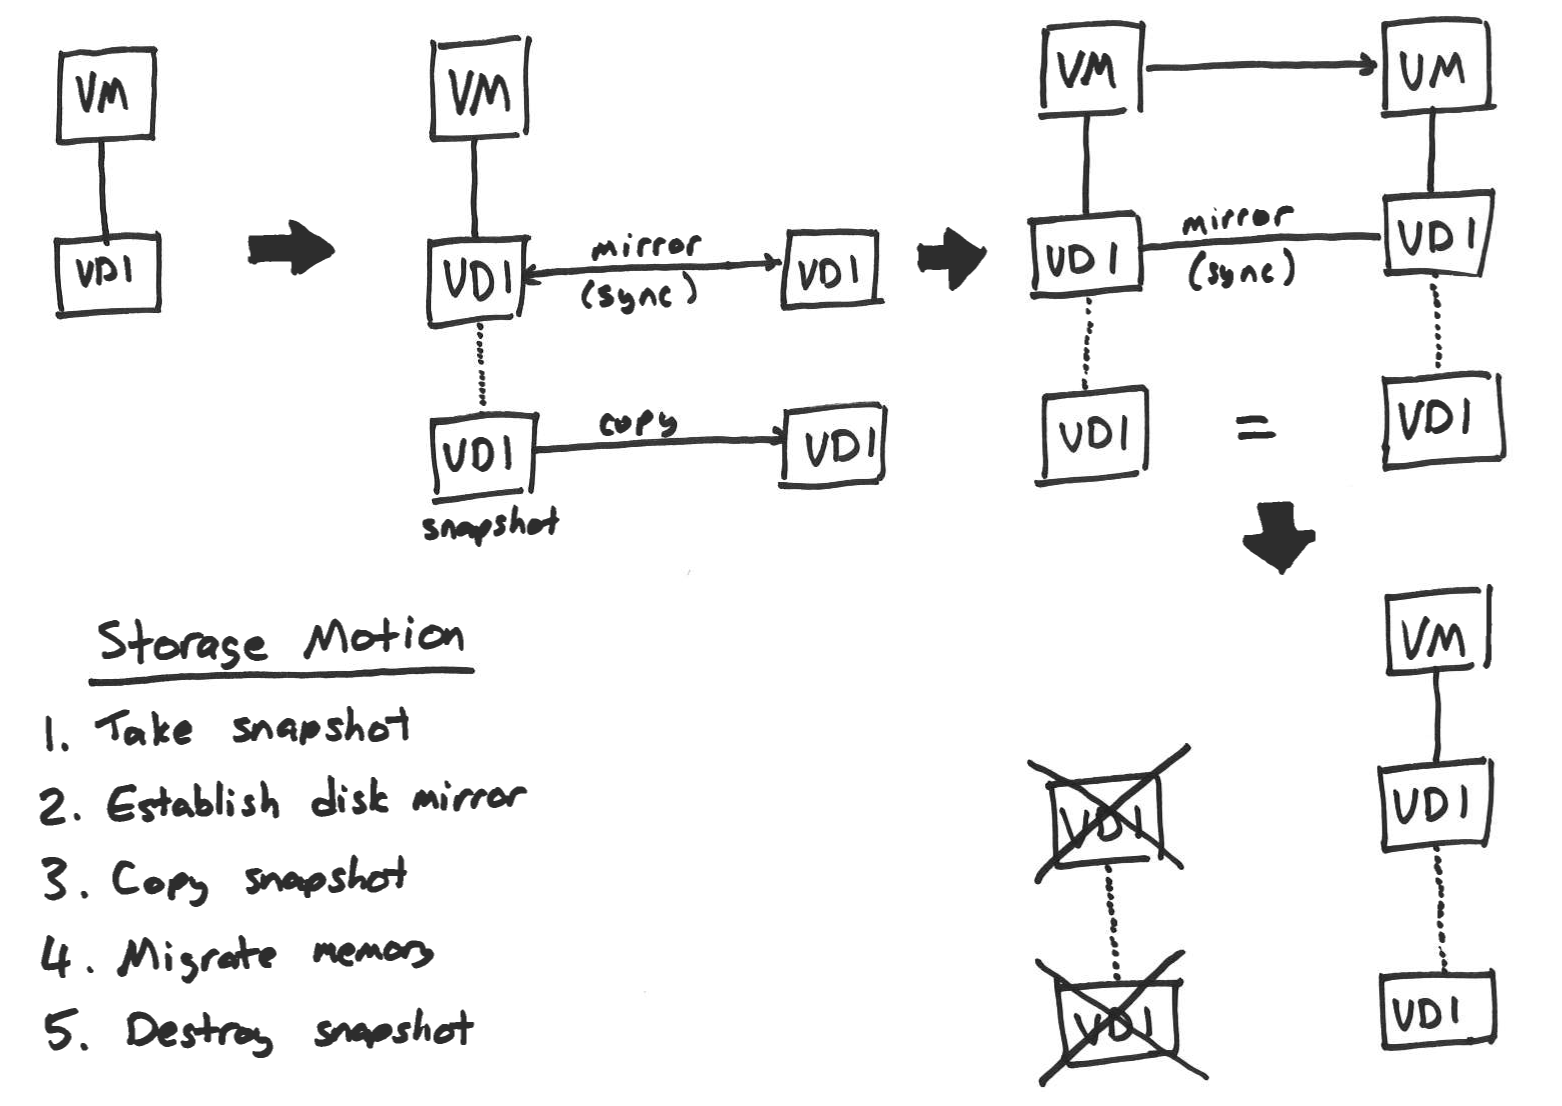 VM
VDI
VM
VDI
mirror
(sync)
VDI
VDI
copy
VDI
snapshot
VM
VM
VDI
mirror
(sync)
VDI
VDI
=
VDI
Storage Motion
1. Take snapshot
2. Establish disk mirror
3. Copy snapshot
4. Migrate memory
5. Destroy snapshot
VM
VDI
VDI
VDI
VDI